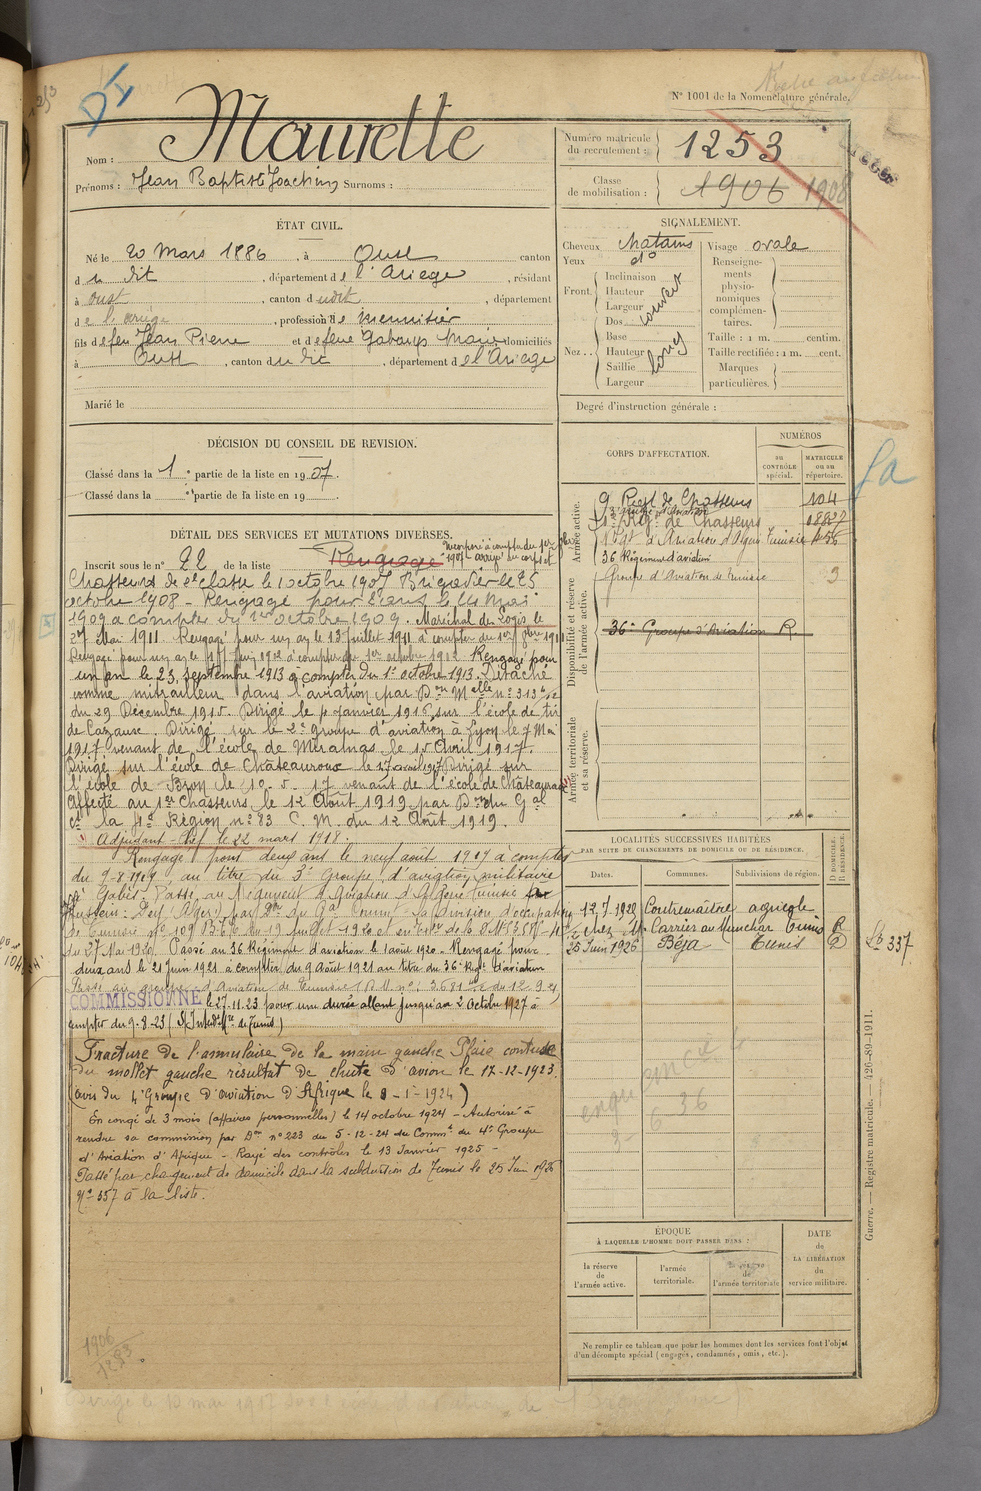 N° 1001 de la Nomenclature générale.
Nom : Maurette
Prénoms : Jean Baptiste Joachim Surnoms :
Numéro matricule du recrutement : 1253
Classe de mobilisation : 1906 1908
ÉTAT CIVIL.
Né le 20 Mars 1886, à Oust canton
du dit, département de l'Ariege, résidant
à oust, canton dudit, département
de l'ariege, profession de menuisier
fils de feu Jean Pierre et de feue Marie domiciliés
à Oust, canton du dit, département de l'Ariege
Marié le
SIGNALEMENT.
Cheveux chatains Visage ovale
Yeux do
Front. Inclinaison
Hauteur
Largeur
couvert
Nez.. Dos
Base
Hauteur
Saillie
Largeur
long
Renseignements physionomiques complémentaires.
Taille : 1 m. centim.
Taille rectifiée : 1 m. cent.
Marques particulières.
Degré d'instruction générale :
DÉCISION DU CONSEIL DE REVISION.
Classé dans la 1e partie de la liste en 1907.
Classé dans la e partie de la liste en 19
DÉTAIL DES SERVICES ET MUTATIONS DIVERSES.
Inscrit sous le n° 22 de la liste Rengagé
Chasseur de 2e classe le 1 octobre 1907 Brigadier le 25
octobre 1908 - Rengagé pour 2 ans le 14 mai
1909 a compter du 1er octobre 1909. Maréchal des Logis le
27 Mai 1911 Rengagé pour un an le 13 juillet 1911 à compter du 1er 8bre 1911
Rengagé pour un an le Juin 1912 à compter du 1er octobre 1912 Rengagé pour
un an le 23 septembre 1913 à compter du 1er octobre 1913. Détaché
comme mitrailleur dans l'aviation par Don Melle n° 313
du 29 Décembre 1915. Dirigé le 4 Janvier 1916 sur l'école de tir
de Cazaux. Dirigé sur le 2e groupe d'aviation à Lyon le 7 Mai
1917 venant de l'école de Miramas le 15 Avril 1917.
Dirigé sur l'école de Châteauroux le 27 avril 1917 Dirigé sur
l'école de Bron le 10.5.17 venant de l'école de Châteauroux
Affecté au 1er Chasseurs le 12 Août 1919 par Don du Gal
Ct la 4e Région n° 83 C. M. du 12 Août 1919.
Adjudant-chef le 22 mars 1918.
Rengagé pour deux ans le neuf août 1919 à compter
du 9-8-1919 au titre du 3e Groupe d'aviation militaire
à Gabès. Passé au Régiment d'Aviation d'Algérie Tunisie
Hussein-Dey (Alger) par Don du Gal Commt la division d'occupation
de Tunisie n° 109
du 27 Mai 1920 Passé au 36 Régiment d'aviation le 1 août 1920 - Rengagé pour
deux ans le 21 Juin 1921 à compter du 9 Août 1921 au titre du 36e Regt d'aviation
Passé au groupe d'Aviation de Tunisie (D. M. n° 3.681 du 12.9.21)
COMMISSIONNÉ le 27.11.23 pour une durée allant jusqu'au 2 Octobre 1927 à
compter du 9-8-23 (S/Intendce Mre de Tunis)
Fracture de l'annulaire de la main gauche Plaie contuse
du mollet gauche résultat de chute d'avion le 17-12-1923.
(avis du 4e Groupe d'Aviation d'Afrique le 8-1-1924)
En congé de 3 mois (affaires personnelles) le 14 octobre 1924 - Autorisé à
rendre sa commission par Don n° 223 du 5-12-24 du Commt du 4e Groupe
d'Aviation d'Afrique - Rayé des contrôles le 13 Janvier 1925 -
Passé par changement de domicile dans la subdivision de Tunis le 25 Juin 1926
N° 337 à la liste.
1906
1253
CORPS D'AFFECTATION.
NUMÉROS
au CONTRÔLE spécial.
MATRICULE ou au répertoire.
Armée active.
9e Regt de Chasseurs 104
1er Regt de Chasseurs
1 Rgt d'Aviation d'Algérie Tunisie 456
36 Régiment d'aviation
Groupe d'Aviation de Tunisie 3
Disponibilité et réserve de l'armée active.
36e Groupe d'Aviation R.
Armée territoriale et sa réserve.
LOCALITÉS SUCCESSIVES HABITÉES
PAR SUITE DE CHANGEMENTS DE DOMICILE OU DE RÉSIDENCE.
Dates. Communes. Subdivisions de région. D. DOMICILE. R. RÉSIDENCE.
12.7.1925 Contremaître agricole
chez Mr Carrier au Munchar Tunis R
25 Juin 1926 Béja Tunis D
Ln 337
ÉPOQUE
À LAQUELLE L'HOMME DOIT PASSER DANS :
la réserve de l'armée active.
l'armée territoriale.
la réserve de l'armée territoriale
DATE de LA LIBÉRATION du service militaire.
Ne remplir ce tableau que pour les hommes dont les services font l'objet
d'un décompte spécial (engagés, condamnés, omis, etc.).
Guerre. — Registre matricule. — 426-89-1911.